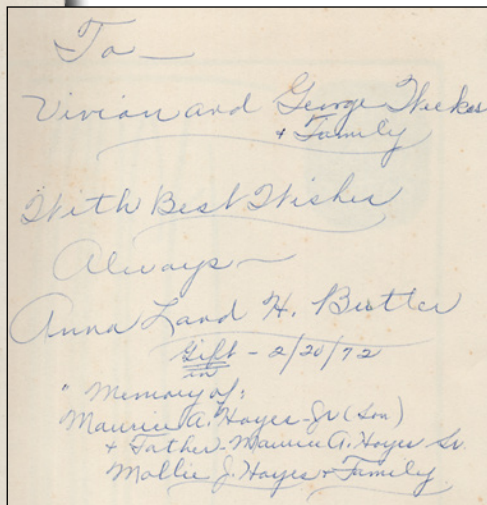 To —
Vivian and George Weekes
+ Family
With Best Wishes
Always —
Anna Land H. Butler
Gift - 2/20/72
in
" Memory of:
Maurice A. Hayes - Jr (Son)
+ Father - Maurice A. Hayes Sr.
Mollie J. Hayes + Family